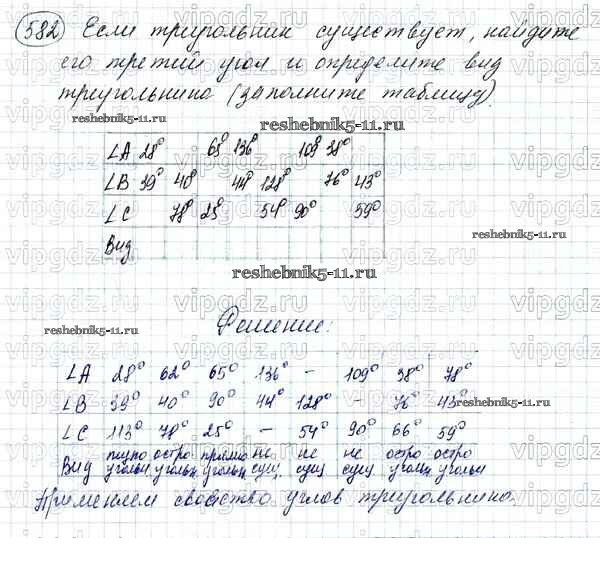 582 Если треугольник существует, найдите
его третий угол и определите вид
треугольника (заполните таблицу).
reshebnik5-11.ru reshebnik5-11.ru
∠A 28° 65° 136° 109° 38°
∠B 39° 40° 44° 128° 76° 43°
∠C 78° 25° 54° 90° 59°
Вид
reshebnik5-11.ru
reshebnik5-11.ru
reshebnik5-11.ru
Решение:
∠A 28° 62° 65° 136° – 109° 38° 78°
∠B 39° 40° 90° 44° 128° – 76° 43°
reshebnik5-11.ru
∠C 113° 78° 25° – 54° 90° 66° 59°
тупо остро прямо не не не остро остро
Вид угольн угольн. угольн. сущ. сущ сущ угольн. угольн
Применяем свойство углов треугольника.
vipgdz.ru